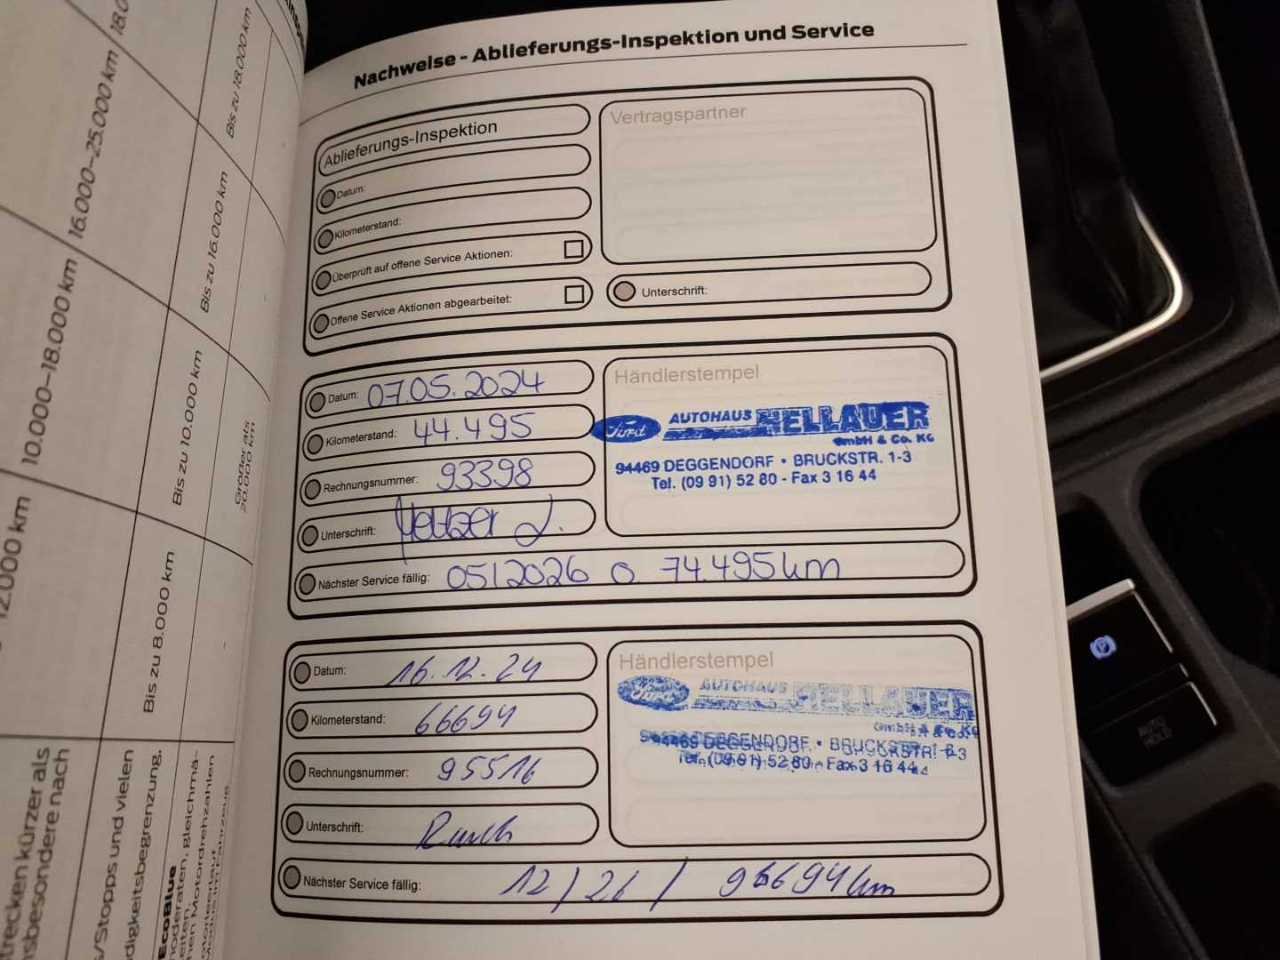 Nachweise - Ablieferungs-Inspektion und Service
Ablieferungs-Inspektion
Datum:
Kilometerstand:
Überprüft auf offene Service Aktionen:
Offene Service Aktionen abgearbeitet:
Vertragspartner
Unterschrift:
Datum: 07.05.2024
Kilometerstand: 44.495
Rechnungsnummer: 93398
Unterschrift:
Nächster Service fällig: 05/2026 o 74.495km
Händlerstempel
Ford AUTOHAUS HELLAUER
GmbH & Co. KG
94469 DEGGENDORF • BRUCKSTR. 1-3
Tel. (09 91) 52 80 - Fax 3 16 44
Datum: 16.12.24
Kilometerstand: 66694
Rechnungsnummer: 95516
Unterschrift:
Nächster Service fällig: 12/26/ 96694km
Händlerstempel
Ford AUTOHAUS HELLAUER
GmbH & Co. KG
94469 DEGGENDORF • BRUCKSTR. 1-3
Tel. (09 91) 52 80 - Fax 3 16 44
16.000–25.000 km
10.000–18.000 km
12.000 km
Bis zu 18.000 km
Bis zu 16.000 km
Bis zu 10.000 km
Bis zu 8.000 km
Größer als
20.000 km
trecken kürzer als
nsbesondere nach
s/Stopps und vielen
digkeitsbegrenzung.
EcoBlue
AUTO
HOLD